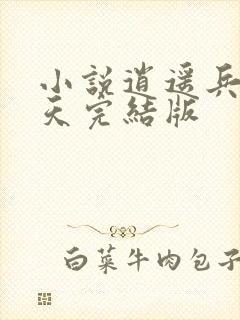 小說逍遥兵
天完結版
白菜牛肉包子